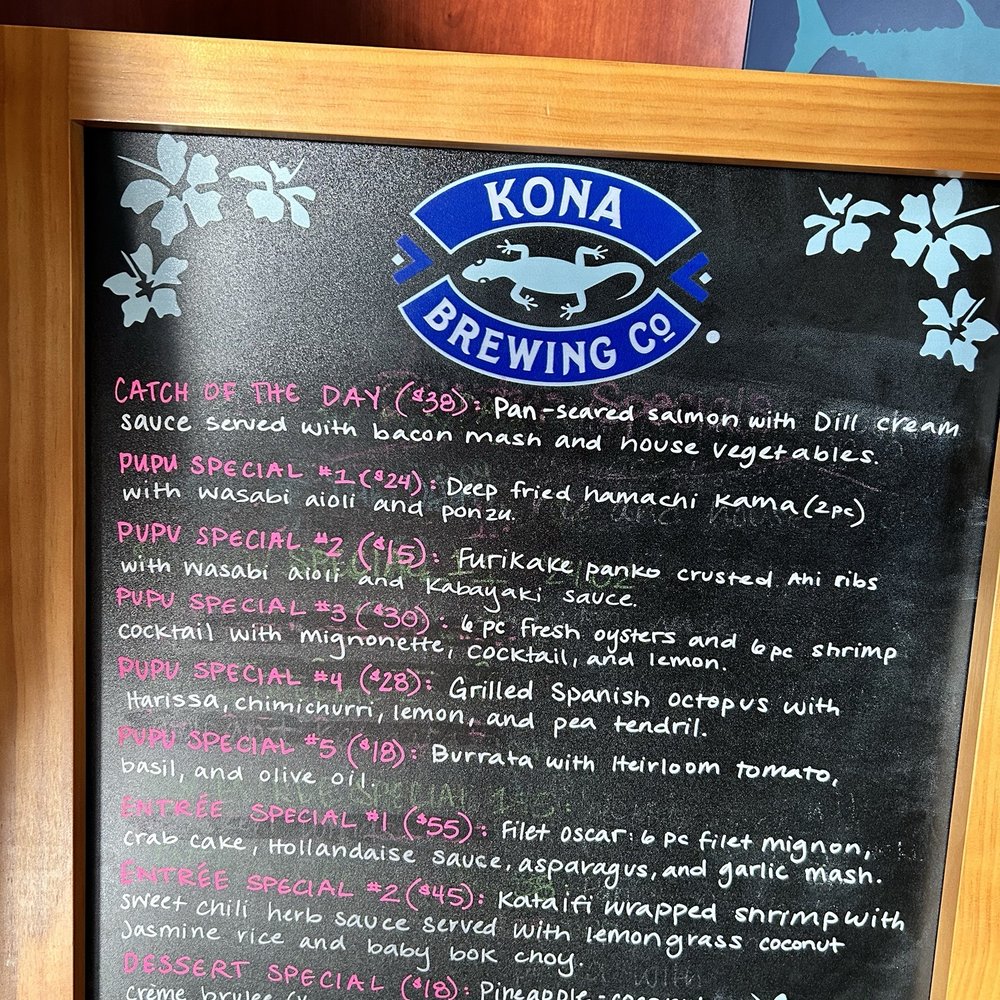 KONA
BREWING CO
CATCH OF THE DAY ($38): Pan-seared salmon with Dill cream
sauce served with bacon mash and house vegetables.
PUPU SPECIAL #1 ($24): Deep fried hamachi Kama (2pc)
with wasabi aioli and ponzu.
PUPU SPECIAL #2 ($15): Furikake panko crusted Ahi ribs
with wasabi aioli and Kabayaki sauce.
PUPU SPECIAL #3 ($30): 6 pc fresh oysters and 6 pc shrimp
cocktail with mignonette, cocktail, and lemon.
PUPU SPECIAL #4 ($28): Grilled Spanish octopus with
Harissa, chimichurri, lemon, and pea tendril.
PUPU SPECIAL #5 ($18): Burrata with Heirloom tomato,
basil, and olive oil.
ENTRÉE SPECIAL #1 ($55): Filet oscar: 6 pc filet mignon,
crab cake, Hollandaise sauce, asparagus, and garlic mash.
ENTRÉE SPECIAL #2 ($45): Kataifi wrapped shrimp with
sweet chili herb sauce served with lemongrass coconut
Jasmine rice and baby bok choy.
DESSERT SPECIAL ($18): Pineapple-
creme brulee